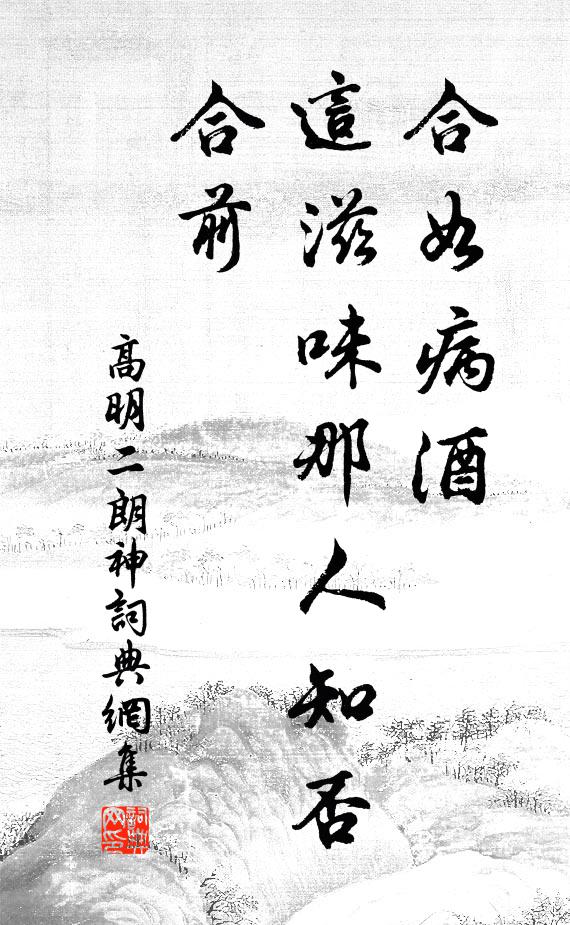 合如病酒
這滋味那人知否
合前
高明二朗神詞典網集
詞典网印